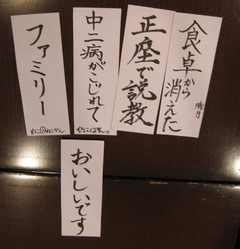 食卓から
消えた
正座で説教
中二病がこじれて
ファミリー
おいしいです